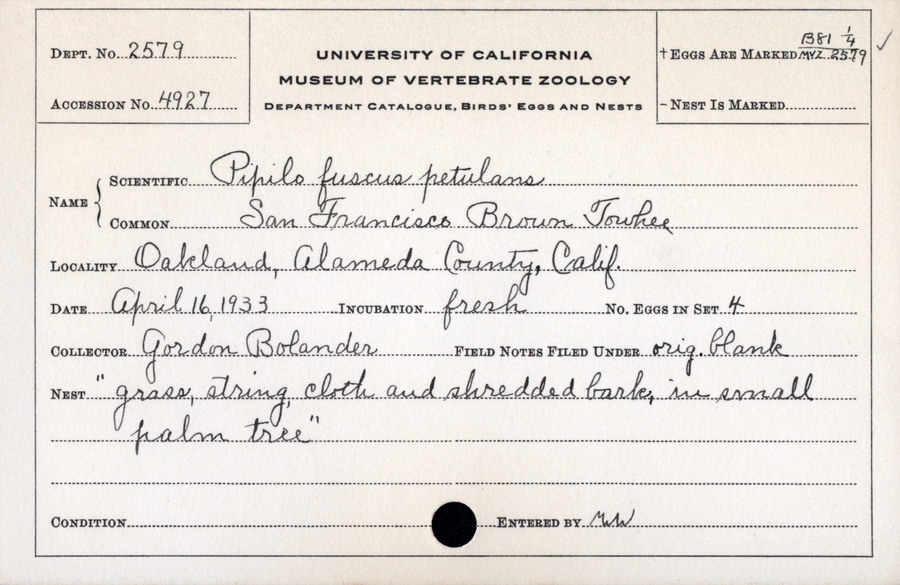 DEPT. NO. 2579
ACCESSION NO. 4927
UNIVERSITY OF CALIFORNIA
MUSEUM OF VERTEBRATE ZOOLOGY
DEPARTMENT CATALOGUE, BIRDS' EGGS AND NESTS
B81 1/4
†EGGS ARE MARKED MVZ 2579 ✓
-NEST IS MARKED
NAME
SCIENTIFIC Pipilo fuscus petulans
COMMON San Francisco Brown Towhee
LOCALITY Oakland, Alameda County, Calif.
DATE April 16, 1933 INCUBATION fresh NO. EGGS IN SET 4
COLLECTOR Gordon Bolander FIELD NOTES FILED UNDER orig. blank
NEST "grass, string, cloth and shredded bark, in small
palm tree"
CONDITION ENTERED BY